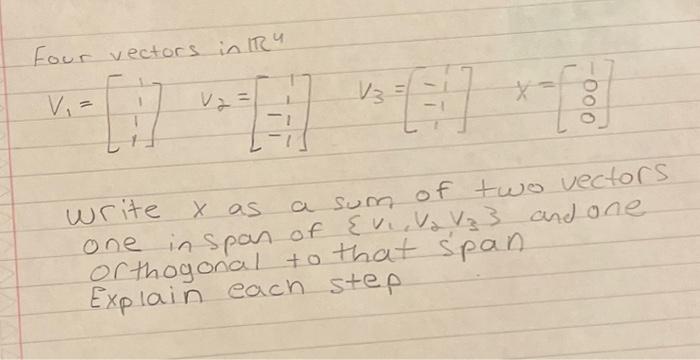 Four vectors in ℝ⁴
V₁ = [1 1 1 1] V₂ = [1 1 -1 -1] V₃ = [1 -1 -1 1] X = [1 0 0 0]
write x as a sum of two vectors
one in span of {V₁, V₂ V₃} and one
orthogonal to that span
Explain each step